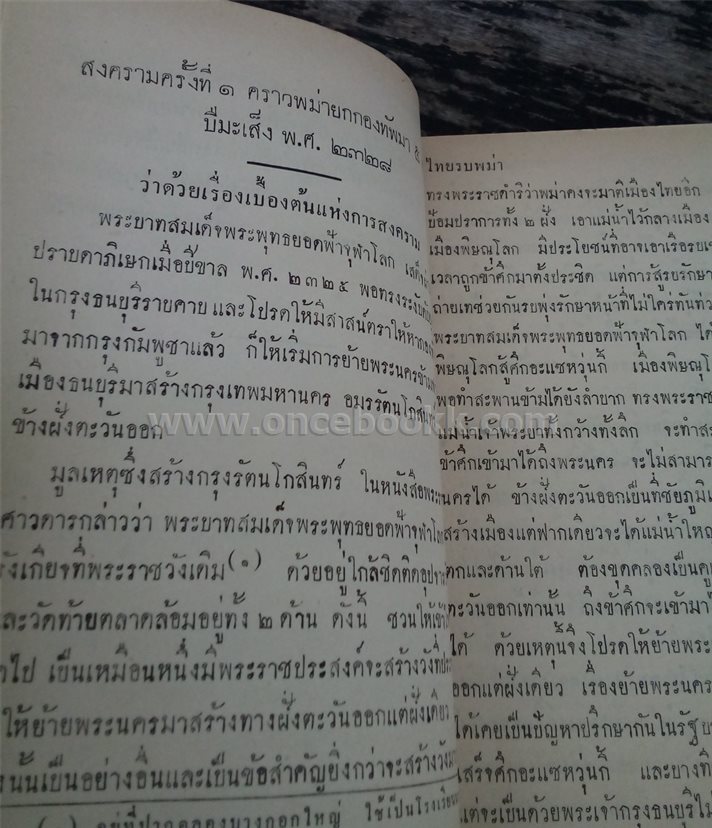 สงครามครั้งที่ ๑ คราวพม่ายกกองทัพมา ๕
ปีมะเส็ง พ.ศ. ๒๓๒๘
ว่าด้วยเรื่องเบื้องต้นแห่งการสงคราม
พระบาทสมเด็จพระพุทธยอดฟ้าจุฬาโลก
ปราบดาภิเษกเมื่อปีขาล พ.ศ. ๒๓๒๕ พอทรงระงับ
ในกรุงธนบุรีราบคาบ และโปรดให้มีสาส์นตราให้หา
มาจากกรุงกัมพูชาแล้ว ก็ให้เริ่มการย้ายพระนครข้าม
เมืองธนบุรีมาสร้างกรุงเทพมหานคร อมรรัตนโกสินทร
ข้างฝั่งตะวันออก
มูลเหตุซึ่งสร้างกรุงรัตนโกสินทร์ ในหนังสือพระ
ศาวดารกล่าวว่า พระบาทสมเด็จพระพุทธยอดฟ้าจุฬา
รังเกียจที่พระราชวังเดิม(๑) ด้วยอยู่ใกล้ชิดติดอุป
และวัดท้ายตลาดล้อมอยู่ทั้ง ๒ ด้าน ดังนี้ ชวนให้เข้า
ไป เป็นเหมือนหนึ่งมีพระราชประสงค์จะสร้างวังที่
ให้ย้ายพระนครมาสร้างทางฝั่งตะวันออกแต่ฝั่งเดียว
นั้นเป็นอย่างอื่นและเป็นข้อสำคัญยิ่งกว่าจะสร้างวัง
อยู่ที่ปากคลองบางกอกใหญ่ ใช้เป็นโรงเรียน
ไทยรบพม่า
ทรงพระราชดำริว่าพม่าคงจะมาตีเมืองไทยอีก
ป้อมปราการทั้ง ๒ ฝั่ง เอาแม่น้ำไว้กลางเมือง
เมืองพิษณุโลก มีประโยชน์ที่อาจเอาเรือรบ
เวลาถูกข้าศึกมาตั้งประชิด แต่การสู้รบรักษา
ถ่ายเทช่วยกันรบพุ่งรักษาหน้าที่ไม่ใคร่ทันท่วง
พระบาทสมเด็จพระพุทธยอดฟ้าจุฬาโลก ได้
พิษณุโลกสู้ศึกอะแซหวุ่นกี้ เมืองพิษณุโ
พอทำสะพานข้ามได้ยังลำบาก ทรงพระราช
แม่น้ำเจ้าพระยาทั้งกว้างทั้งลึก จะทำสะ
ข้าศึกเข้ามาได้ถึงพระนคร จะไม่สามาร
นครได้ ข้างฝั่งตะวันออกเป็นที่ชัยภูมิ
สร้างเมืองแต่ฟากเดียวจะได้แม่น้ำใหญ่
ตกและด้านใต้ ต้องขุดคลองเป็นคู
ตะวันออกเท่านั้น ถึงข้าศึกจะเข้ามา
ได้ ด้วยเหตุนี้จึงโปรดให้ย้ายพระ
ออกแต่ฝั่งเดียว เรื่องย้ายพระนคร
ได้เคยเป็นปัญหาปรึกษากันในรัฐบ
เสร็จศึกอะแซหวุ่นกี้ และบางที
แต่จะเป็นด้วยพระเจ้ากรุงธนบุรีไม่
www.oncebookk.com